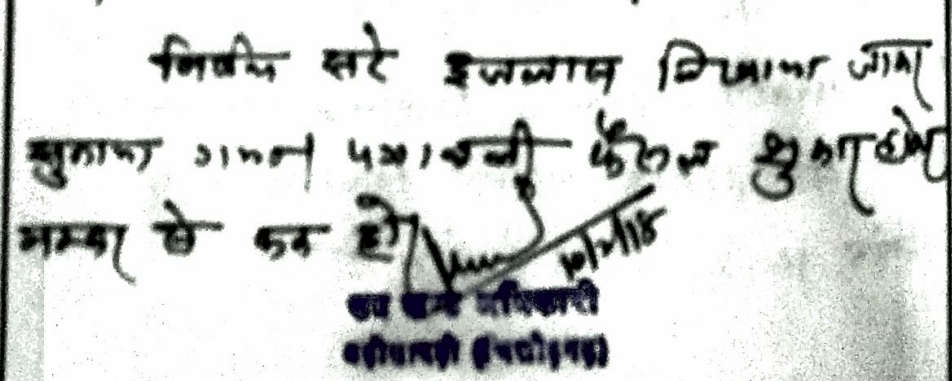 निर्णय सरे इजलास लिखाया जाकर
सुनाया गया पत्रावली फैसल शुमार होकर
नम्बर से कम हो
उप खण्ड अधिकारी
बड़ीसादड़ी (चित्तौड़गढ़)